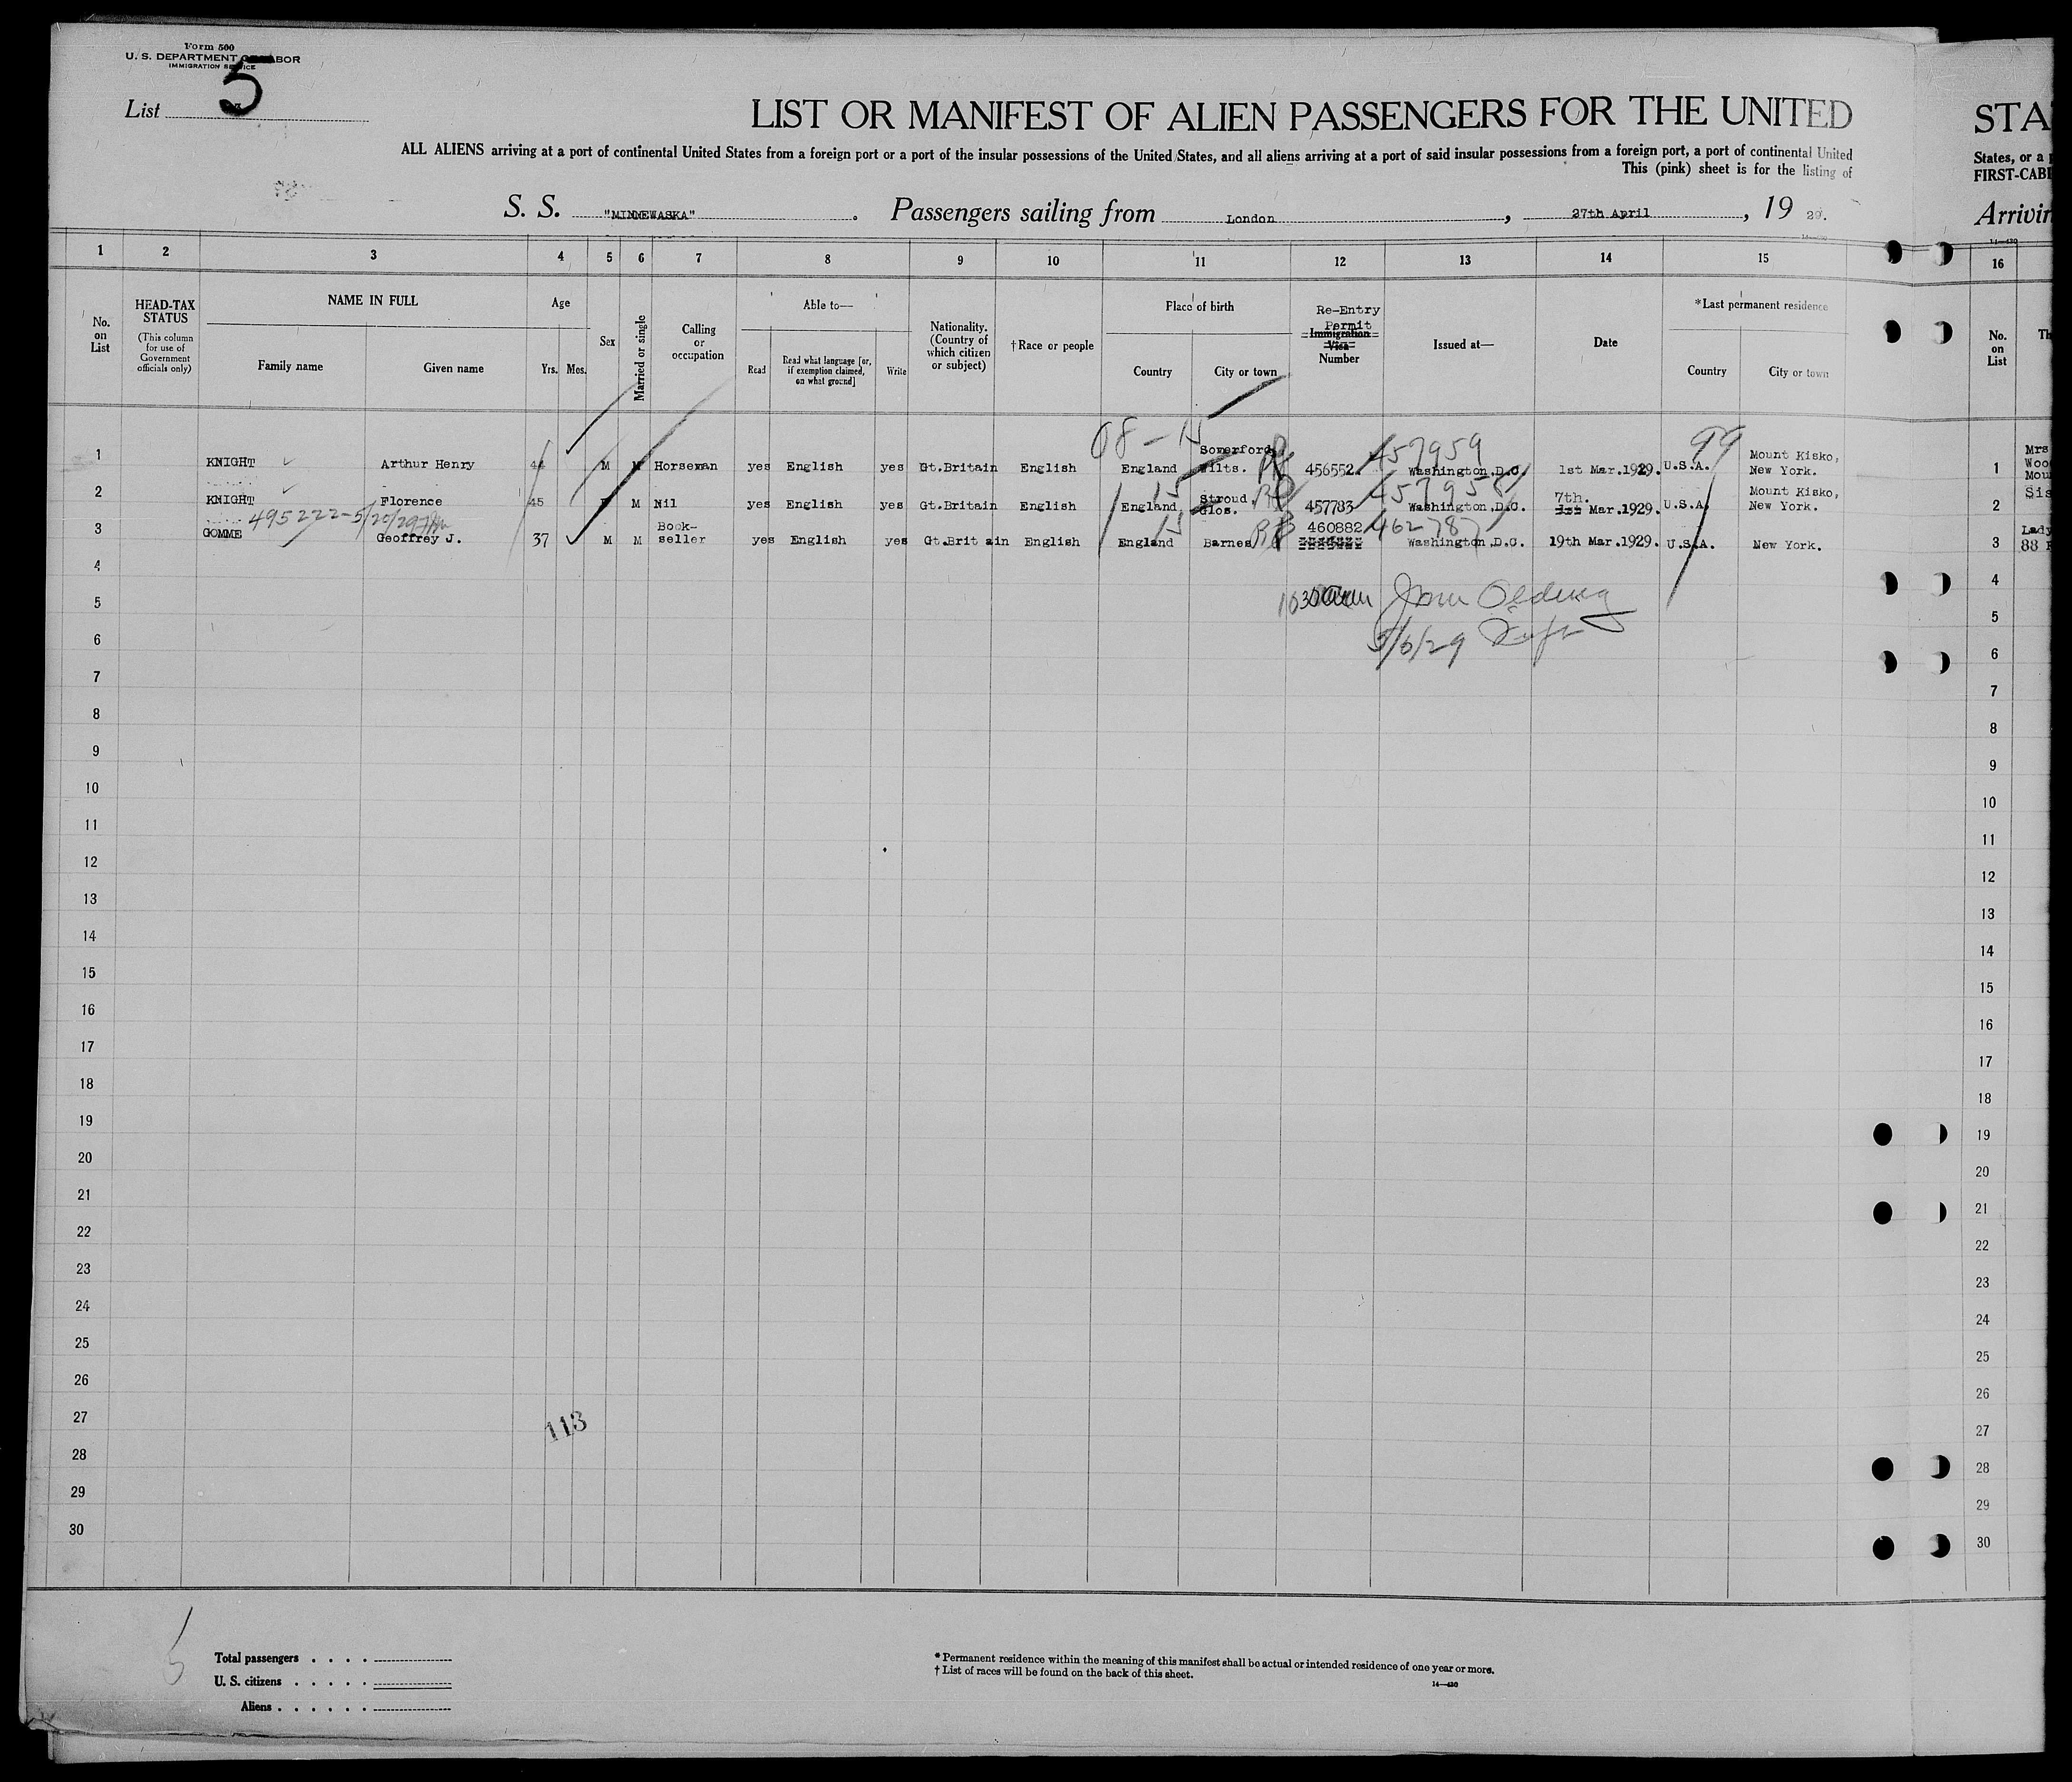 Form 500
U. S. DEPARTMENT OF LABOR
IMMIGRATION SERVICE
List 5
LIST OR MANIFEST OF ALIEN PASSENGERS FOR THE UNITED
STA
ALL ALIENS arriving at a port of continental United States from a foreign port or a port of the insular possessions of the United States, and all aliens arriving at a port of said insular possessions from a foreign port, a port of continental United
States, or a
This (pink) sheet is for the listing of
FIRST-CABI
S. S. "MINNEWASKA". Passengers sailing from London, 27th April, 19 29.
Arrivin
14—430
1 2 3 4 5 6 7 8 9 10 11 12 13 14 15 16
No. on List
HEAD-TAX STATUS
(This column for use of Government officials only)
NAME IN FULL
Family name
Given name
Age
Yrs. Mos.
Sex
Married or single
Calling or occupation
Able to—
Read
Read what language [or, if exemption claimed, on what ground]
Write
Nationality. (Country of which citizen or subject)
†Race or people
Place of birth
Country
City or town
Re-Entry
Permit
Immigration
Visa
Number
Issued at—
Date
*Last permanent residence
Country
City or town
No. on List
Th
08-15 457959 99
1 KNIGHT Arthur Henry 44 M M Horseman yes English yes Gt.Britain English England Somerford, Wilts. 456552. Washington.D.C. 1st Mar.1929. U.S.A. Mount Kisko, New York. 1 Mrs
15 457958
2 KNIGHT Florence 45 F M Nil yes English yes Gt.Britain English England Stroud Glos. 457783 Washington.D.C. 7th. 1st Mar.1929. U.S.A. Mount Kisko, New York. 2 Sis
495222-5/20/29
15 462787
3 GOMME Geoffrey J. 37 M M Book-seller yes English yes Gt.Britain English England Barnes 460882 Washington.D.C. 19th Mar.1929. U.S.A. New York. 3 Lady 88
4 4
5 5
5/6/29
6 6
7 7
8 8
9 9
10 10
11 11
12 12
13 13
14 14
15 15
16 16
17 17
18 18
19 19
20 20
21 21
22 22
23 23
24 24
25 25
26 26
27 27
113
28 28
29 29
30 30
Total passengers
U. S. citizens
Aliens
* Permanent residence within the meaning of this manifest shall be actual or intended residence of one year or more.
† List of races will be found on the back of this sheet.
14—430